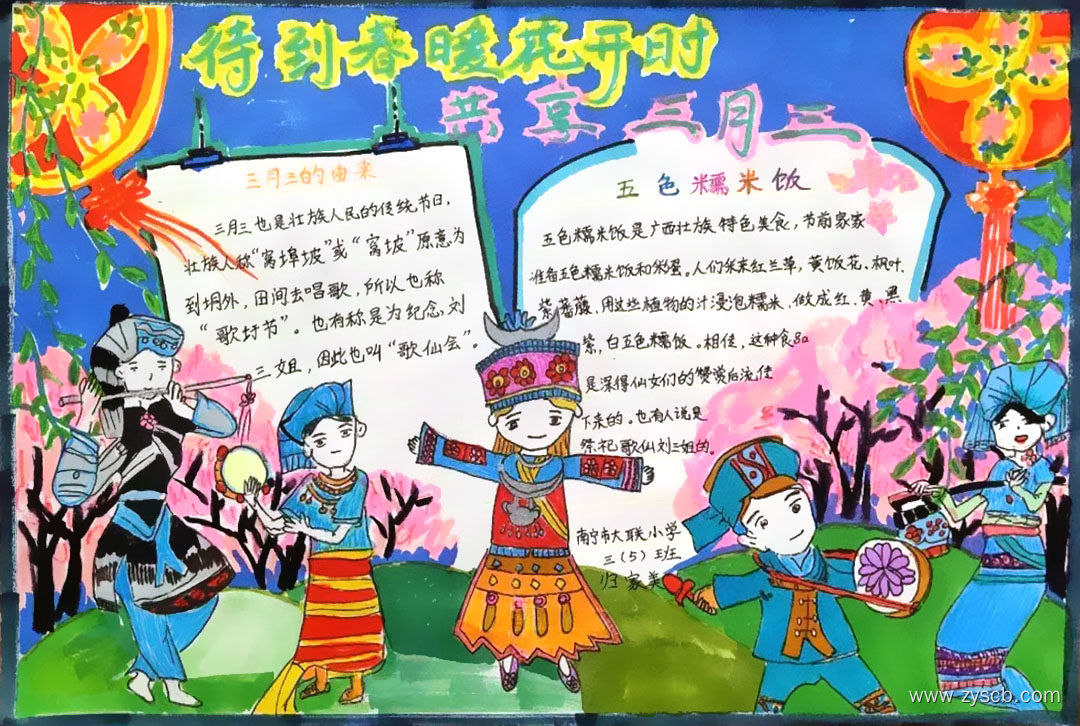 待到春暖花开时
共享三月三
三月三的由来
三月三也是壮族人民的传统节日，
壮族人称“窝埠坡”或“窝坡”原意为
到垌外，田间去唱歌，所以也称
“歌圩节”。也有称是为纪念刘
三姐，因此也叫“歌仙会”。
五色糯米饭
五色糯米饭是广西壮族特色美食，节前家家
准备五色糯米饭和彩蛋。人们采来红兰草，黄饭花、枫叶、
紫蕃藤，用这些植物的汁浸泡糯米，做成红、黄、黑
紫，白五色糯饭。相传，这种食品
是深得仙女们的赞赏后流传
下来的。也有人说是
祭祀歌仙刘三姐的。
南宁市大联小学
三（5）班
归家
www.zyscb.com